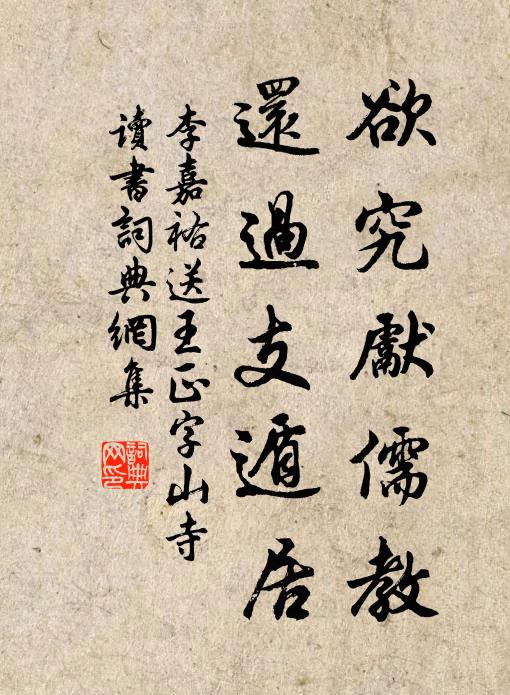 欲究獻儒教
還過支遁居
李嘉祐送王正字山寺
讀書詞典網集
詞典網印